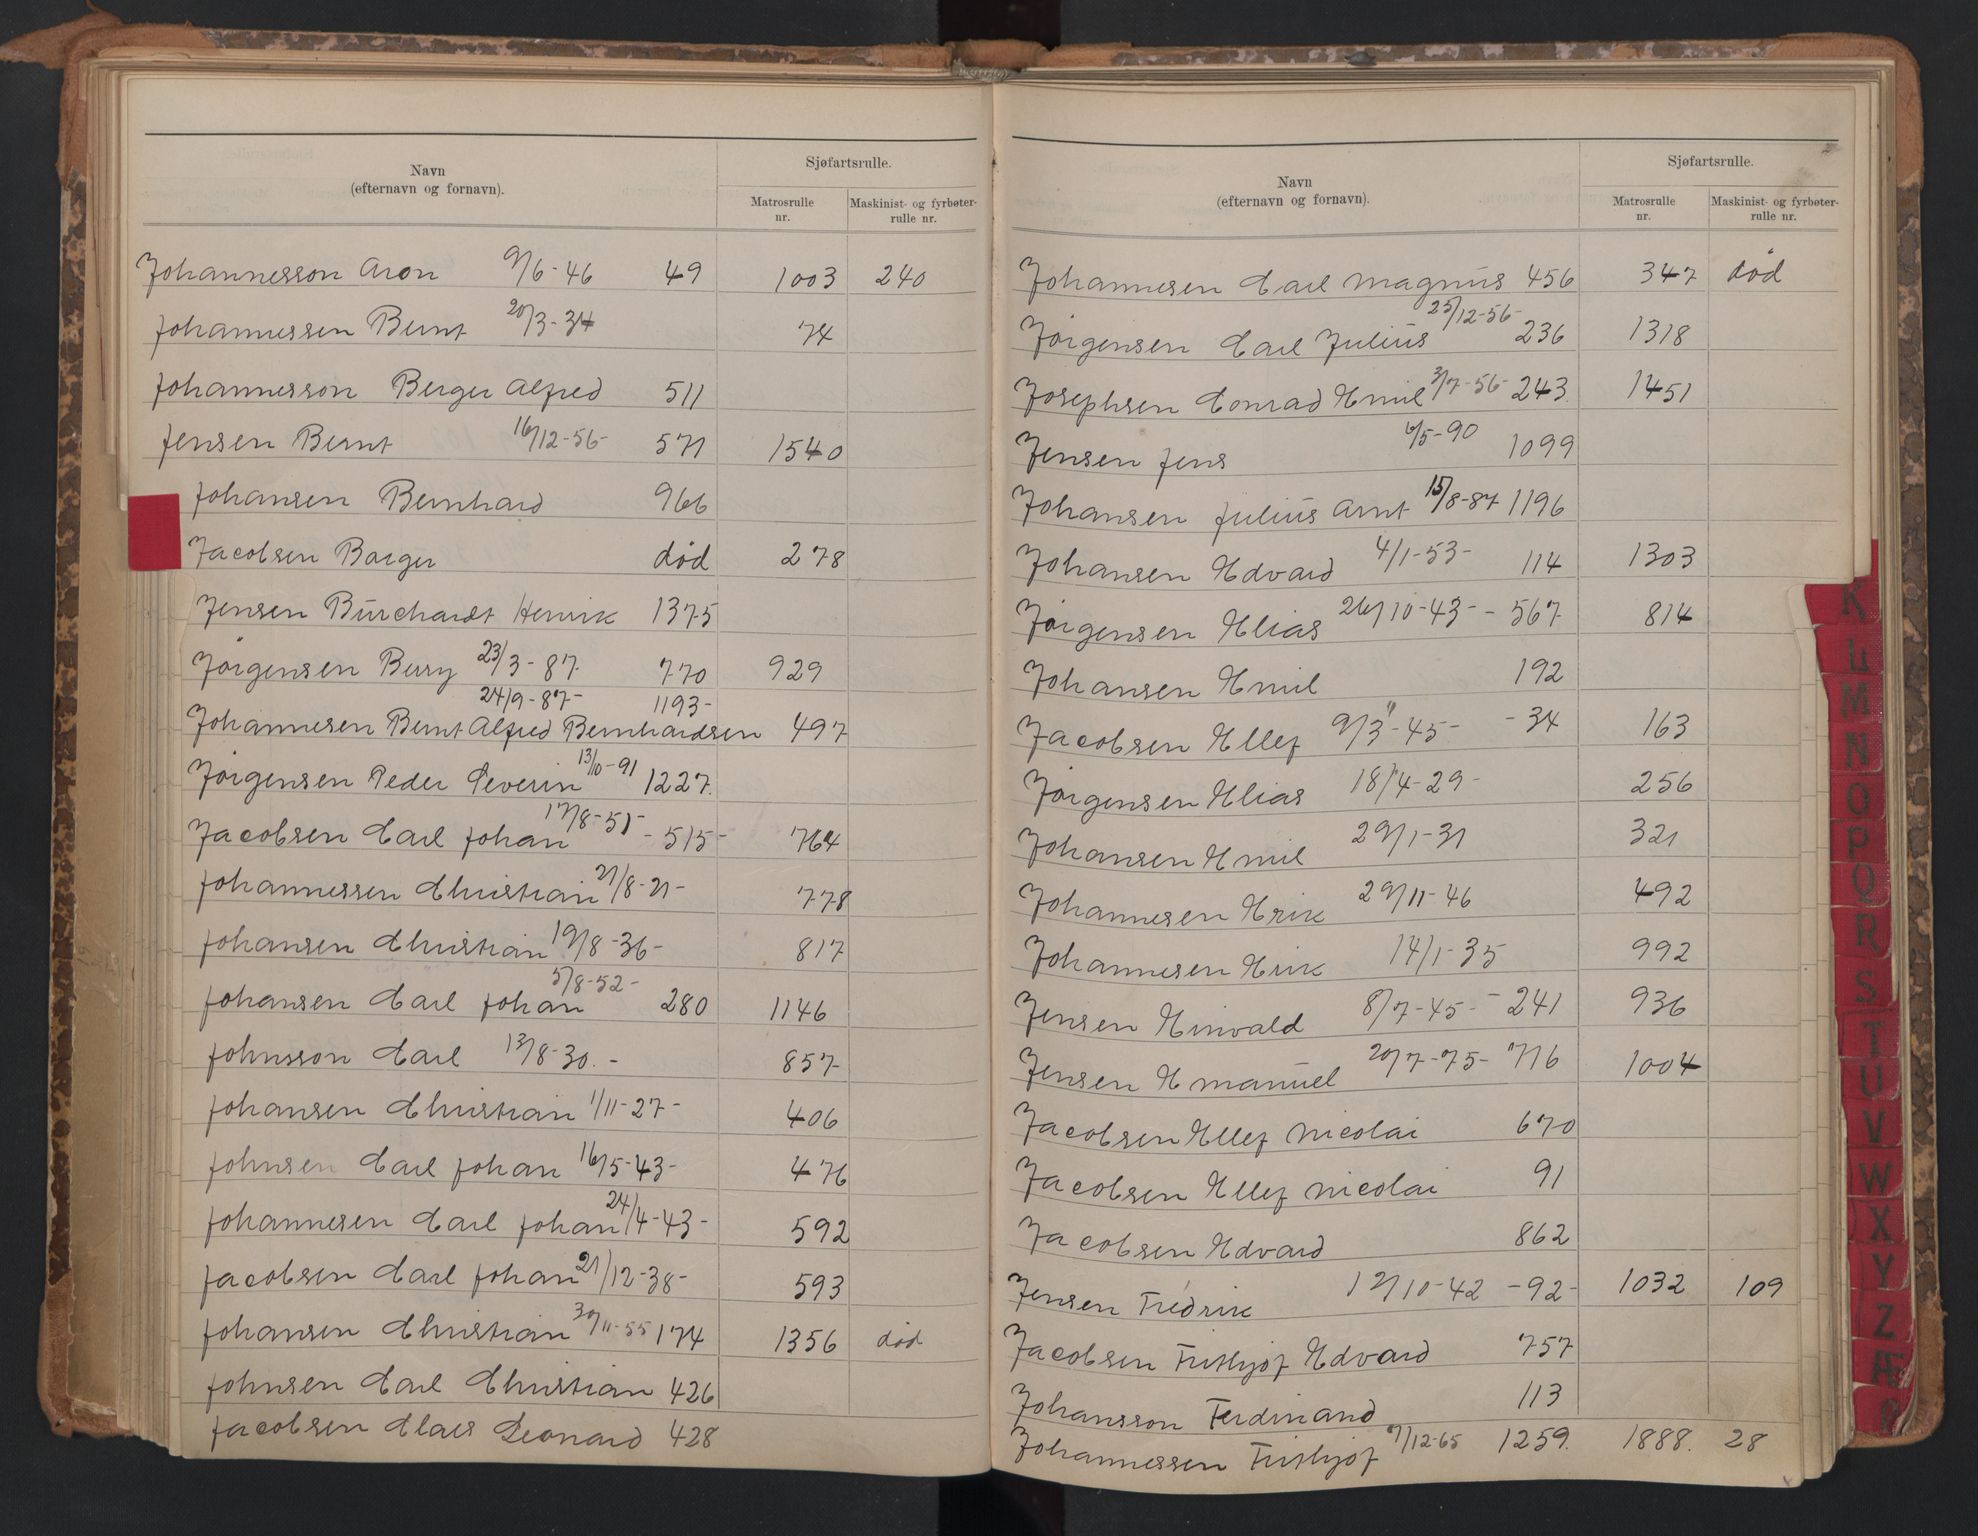 Navn
(efternavn og fornavn).
Sjøfartsrulle.
Matrosrulle
nr.
Maskinist- og fyrbøter-
rulle nr.
Johannesson Aron 9/6-46 49 1003 240
Johannessen Bernt 20/3-34 74
Johannesson Berger Alfred 511
Jensen Bernt 16/12-56- 571 1540
Johansen Bernhard 966
Jacobsen Borger død 278
Jensen Burchardt Henrik 1375
Jørgensen Berry 23/3-87. 770 929
24/9-87- 1193-
Johannesen Bernt Alfred Bernhardsen 497
Jørgensen Peder Severin 13/10-91 1227.
Jacobsen Carl Johan 17/8-51- -515- 764
Johannessen Christian 21/8-21- 778
Johansen Christian 19/8-36- 817
Johansen Carl Johan 5/8-52- 280 1146
Johnsson Carl 13/8-30.- 857
Johansen Christian 1/11-27- 406
Johnsen Carl Johan 16/5-43- 476
Johannesen Carl Johan 24/4-43- 592
Jacobsen Carl Johan 21/12-38- 593
Johansen Christian 30/11-55 174 1356 død
Johnsen Carl Christian 426
Jacobsen Claes Leonard 428
Navn
(efternavn og fornavn).
Sjøfartsrulle.
Matrosrulle
nr.
Maskinist- og fyrbøter-
rulle nr.
Johannesen Carl Magnus 456 347 død
Jørgensen Carl Julius 25/12-56- 236 1318
Josephsen Conrad Emil 3/7-56- 243 1451
Jensen Jens 6/5-90 1099
Johansen Julius Arnt 15/8-87 1196
Johansen Edvard 4/1-53- 114 1303
Jørgensen Elias 26/10-43- - 567 814
Johansen Emil 192
Jacobsen Ellef 9/3-45- -34 163
Jørgensen Elias 18/4-29- 256
Johansen Emil 29/1-31 321
Johannesen Erik 29/11-46 492
Johannesen Erik 14/1-35 992
Jensen Einvald 8/7-45- - 241 936
Jensen Emanuel 20/7-75- 716 1004
Jacobsen Ellef Nicolai 670
Jacobsen Ellef Nicolai 91
Jacobsen Edvard 862
Jensen Fredrik 12/10-42 -92- 1032 109
Jacobsen Frithjof Edvard 757
Johansson Ferdinand 113
Johannessen Frithjof 7/12-65 1259. 1888. 28
K
L
M
N
O
P
Q
R
S
T
U
V
W
X
Y
Z
Æ